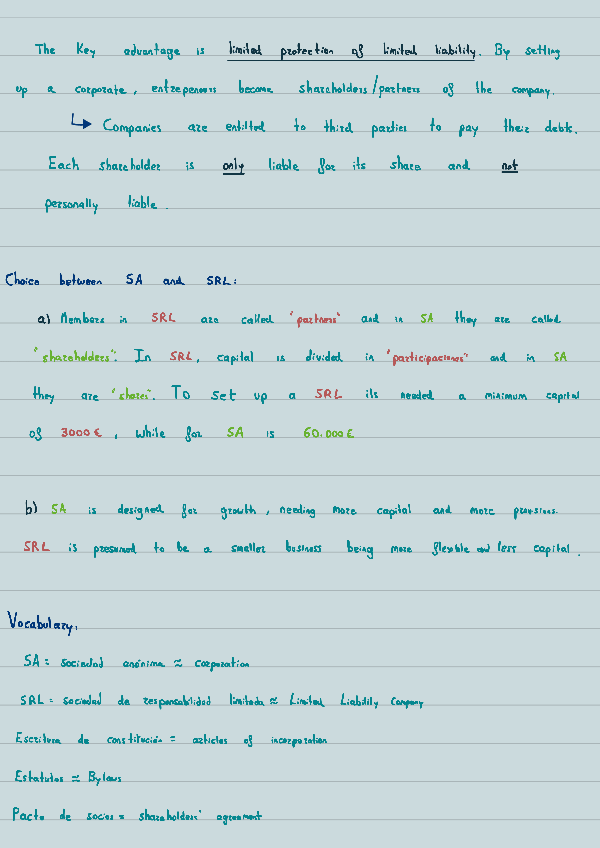 The Key advantage is limited protection of limited liability. By setting
up a corporate, entrepeneurs become shareholders/partners of the company.
Companies are entitled to third parties to pay their debts.
Each shareholder is only liable for its share and not
personally liable.
Choice between SA and SRL:
a) Members in SRL are called "partners" and in SA they are called
"shareholders". In SRL, capital is divided in "participaciones" and in SA
they are "shares". To set up a SRL its needed a minimum capital
of 3000€, while for SA is 60.000€
b) SA is designed for growth, needing more capital and more provisions.
SRL is presumed to be a smaller business being more flexible and less capital.
Vocabulary:
SA = sociedad anónima ≈ corporation
SRL = sociedad de responsabilidad limitada ≈ Limited Liability Company
Escritura de constitución = articles of incorporation
Estatutos ≈ Bylaws
Pacto de socios = shareholders' agreement